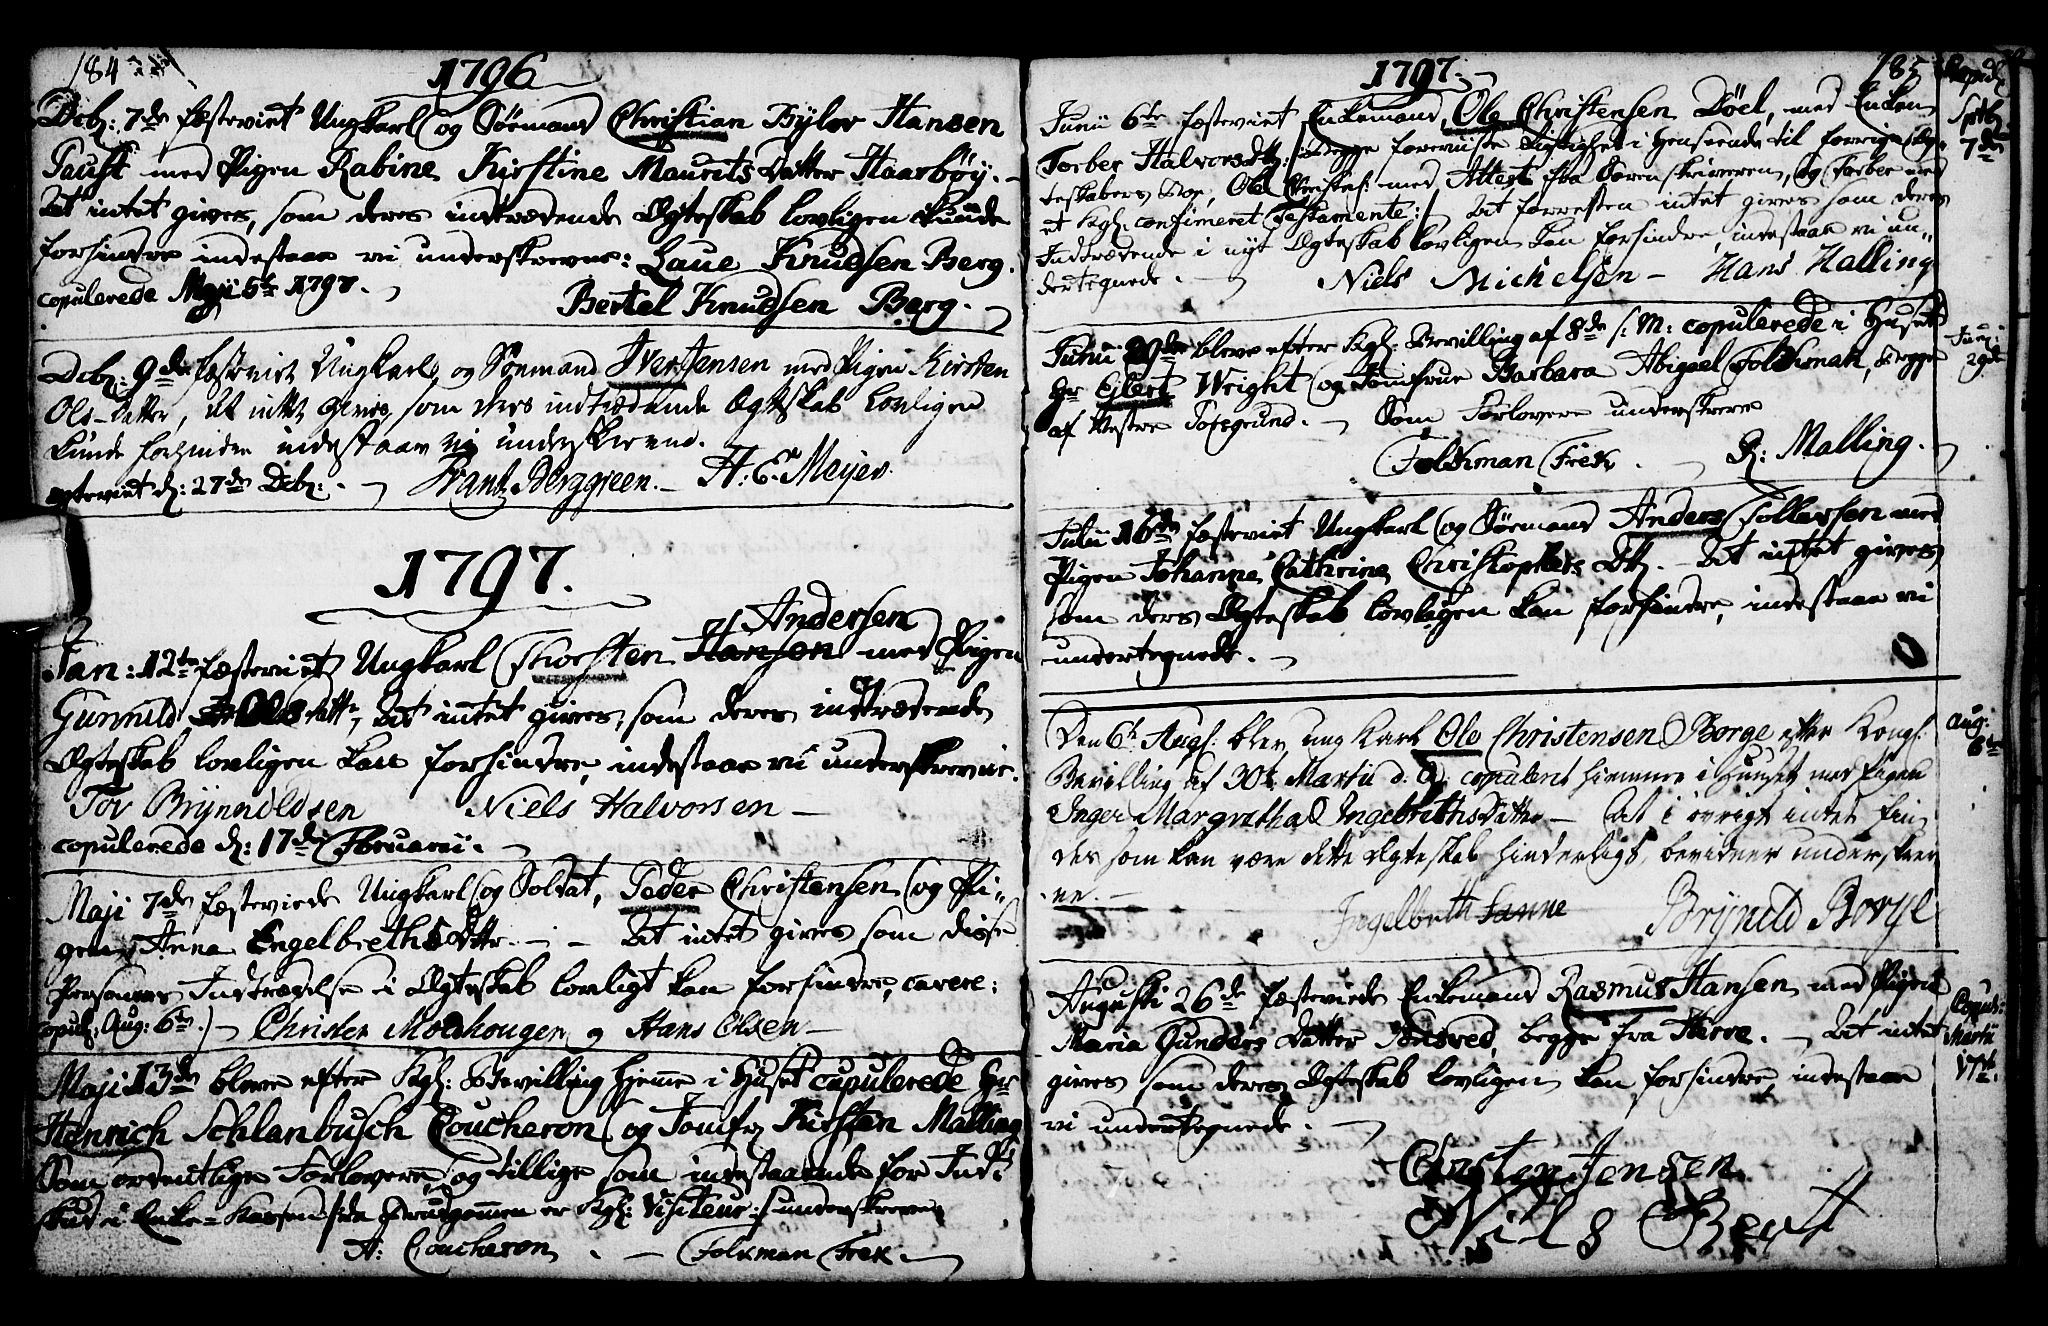 184
1796
Decbr: 7de fæsteviet Ungkarl og Söemand Christian Byler Hansen
Faust med Pigen Rabine Kirstine Maurits Datter Haarböy. -
At intet gives, som deres indtrædende Ægteskab lovligen kunde
forhindre indestaae vi underskrevne: Laue Knudsen Berg.
copulerede Maji 5te 1797. Bertel Knudsen Berg.
Decbr: 9de fæsteviet Ungkarl og Söemand Iver Jensen med Pigen Kirsten
Ols-Datter, At intet gives, som deres indtrædende Ægteskab lovligen
kunde forhindre indestaae vi underskrevne.
egteviet d: 27de Decbr: Frantz Berggreen. - H. E. Meyer.
1797.
Andersen
Jan: 12te fæsteviet Ungkarl Thorsten Hansen med Pigen
Gunnild Ols datter, At intet gives, som deres indtrædende
Ægteskab lovligen kan forhindre, indestaae vi underskrevne.
Tov Brynnildsen Niels Halvorsen -
copulerede d: 17de Februarii.
Maji 7de fæsteviede Ungkarl og Soldat, Peder Christensen og Pi-
gen Anna Engelbreths Datter. - At intet gives som disse
Personers Indtrædelse i Ægteskab lovligt kan forhindre, cavere:
copul: Aug: 6te.) Christen Moldhougen og Hans Olsen -
Maji 13de bleve efter Kgl: Bevilling hjemme i Huset copulerede Hr
Henrich Schlanbusch Coucheron og Jomfr Kirsten Malling
Som ordentlige Forlovere, og tillige som indestaaende for Ind-
skud i Enke-Kassen da Brudgommen er Kgl: Visiteur: underskrevne
A: Coucheron. - Folkman Frek.
1797.
185
Junii 6te fæsteviet Enkemand, Ole Christensen Döel, med Enken
Torber Halvorsdtr: begge foreviiste Rigtighed i Henseende til forrige Æg-
teskabers Boe, Ole Christens: med Attest fra Sorenskriveren, og Torber med
et Kgl: confirmeret Testamente: At forresten intet gives som deres
Indtrædende i nyt Ægteskab lovligen kan forhindre, indestaae vi un-
dertegnede. - Niels Michelsen - Hans Halling
Septbr
7de
Junii 29de bleve efter Kgl: Bevilling af 8de s: M: copulerede i Huset
Hr Eilert Wright og Jomfrue Barbara Abigael Folkman, begge
af Vestre Porsgrund. - Som Forlovere underskreve
Folkman Frek. - R: Malling.
Juni
29de
Julii 16de fæsteviet Ungkarl og Söemand Anders Tollefsen med
Pigen Johanne Cathrine Christophers Dtr. - At intet gives
som deres Ægteskab lovligen kan forhindre, indestaae vi
undertegnede.
Den 6te Augs: blev ung Karl Ole Christensen Borge efter Kongl:
Bevilling af 30te Martii d: A: copuleret hiemme i Huuset med Pigen
Inger Margretha Ingebrethsdatter - At i övrigt intet fin-
des som kan være dette Ægteskab hinderligt, bevidner underskrev-
ne. -
Ingelbreth Fanne Brynild Borge
Aug:
6te
Augusti 26de fæsteviede Enkemand Rasmus Hansen med Pigen
Maria Gunders Datter begge fra Herre. - At intet
gives som deres Ægteskab lovligen kan forhindre, indestaae
vi undertegnede. -
Christen Jensen
Niels
Copul:
Martii
17de.